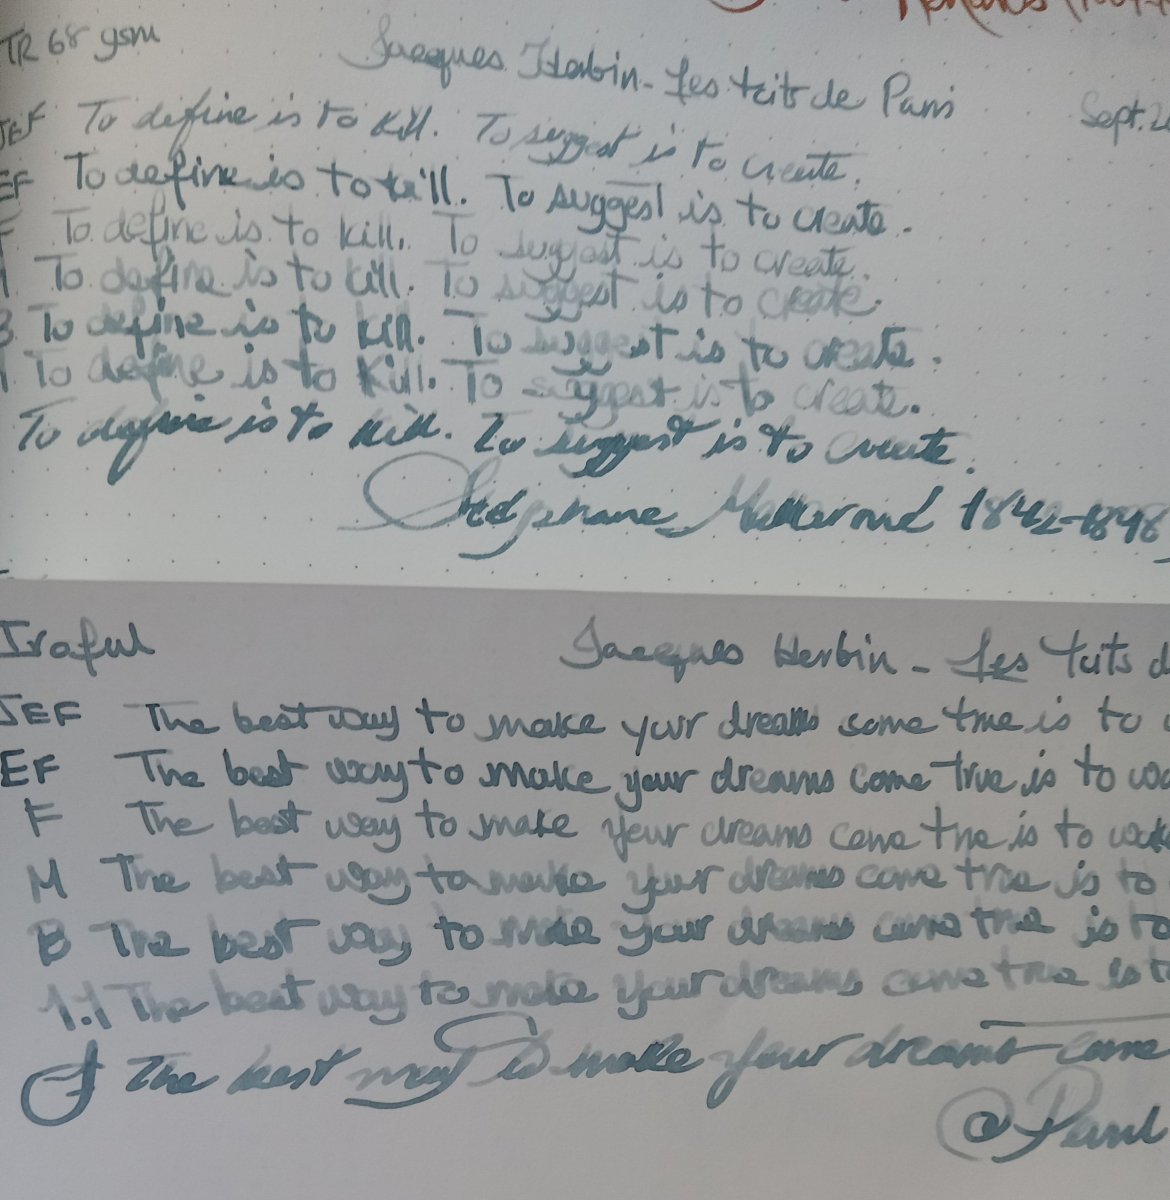 TR 68 gsm Jacques Herbin - Les toits de Paris Sept.
JEF To define is to kill. To suggest is to create.
EF To define is to kill. To suggest is to create.
F To define is to kill. To suggest is to create.
To define is to kill. To suggest is to create.
B To define is to kill. To suggest is to create.
To define is to kill. To suggest is to create.
To define is to kill. To suggest is to create.
Stéphane 1842-1898
Iroful Jacques Herbin - Les toits d
JEF The best way to make your dreams come true is to
EF The best way to make your dreams come true is to wa
F The best way to make your dreams come true is to wake
M The best way to make your dreams come true is to
B The best way to make your dreams come true is to
1.1 The best way to make your dreams come true is t
The best way to make your dreams come
@Paul